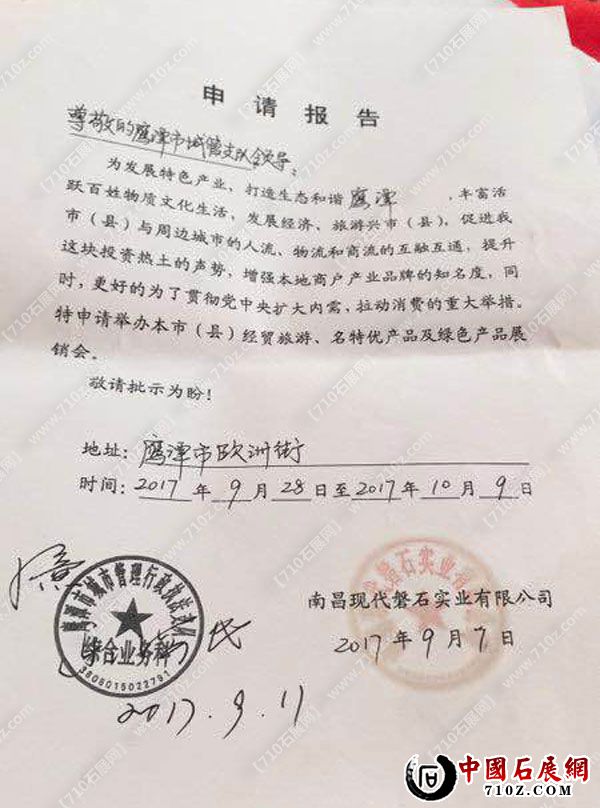 申请报告
尊敬的鹰潭市城管支队领导：
为发展特色产业、打造生态和谐鹰潭，丰富活
跃百姓物质文化生活，发展经济、旅游兴市（县），促进我
市（县）与周边城市的人流、物流和商流的互融互通，提升
这块投资热土的声势，增强本地商户产业品牌的知名度，同
时，更好的为了贯彻党中央扩大内需，拉动消费的重大举措。
特申请举办本市（县）经贸旅游、名特优产品及绿色产品展
销会。
敬请批示为盼！
地址：鹰潭市欧洲街
时间：2017年9月28日至2017年10月9日
鹰潭市城市管理行政执法支队
综合业务科
3606015022791
南昌现代磐石实业有限公司
2017年9月7日
2017.9.11
中國石展網
710z.com
【710石展网】
www.710z.com